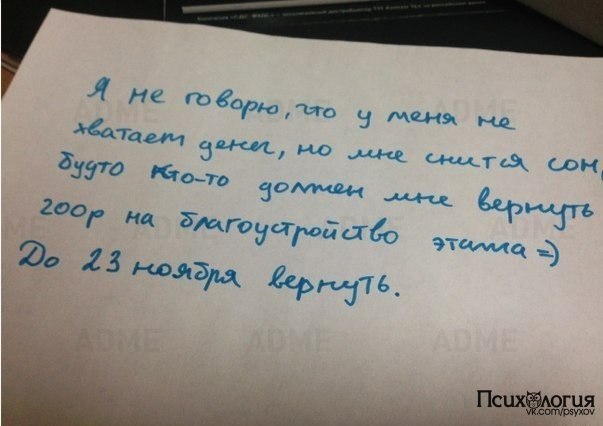 Я не говорю, что у меня не
хватает денег, но мне снится сон,
будто кто-то должен мне вернуть
200р на благоустройство этажа =)
До 23 ноября вернуть.
ADME
ADME
ADME
ADME
ADME
ADME
Психология
vk.com/psyxov